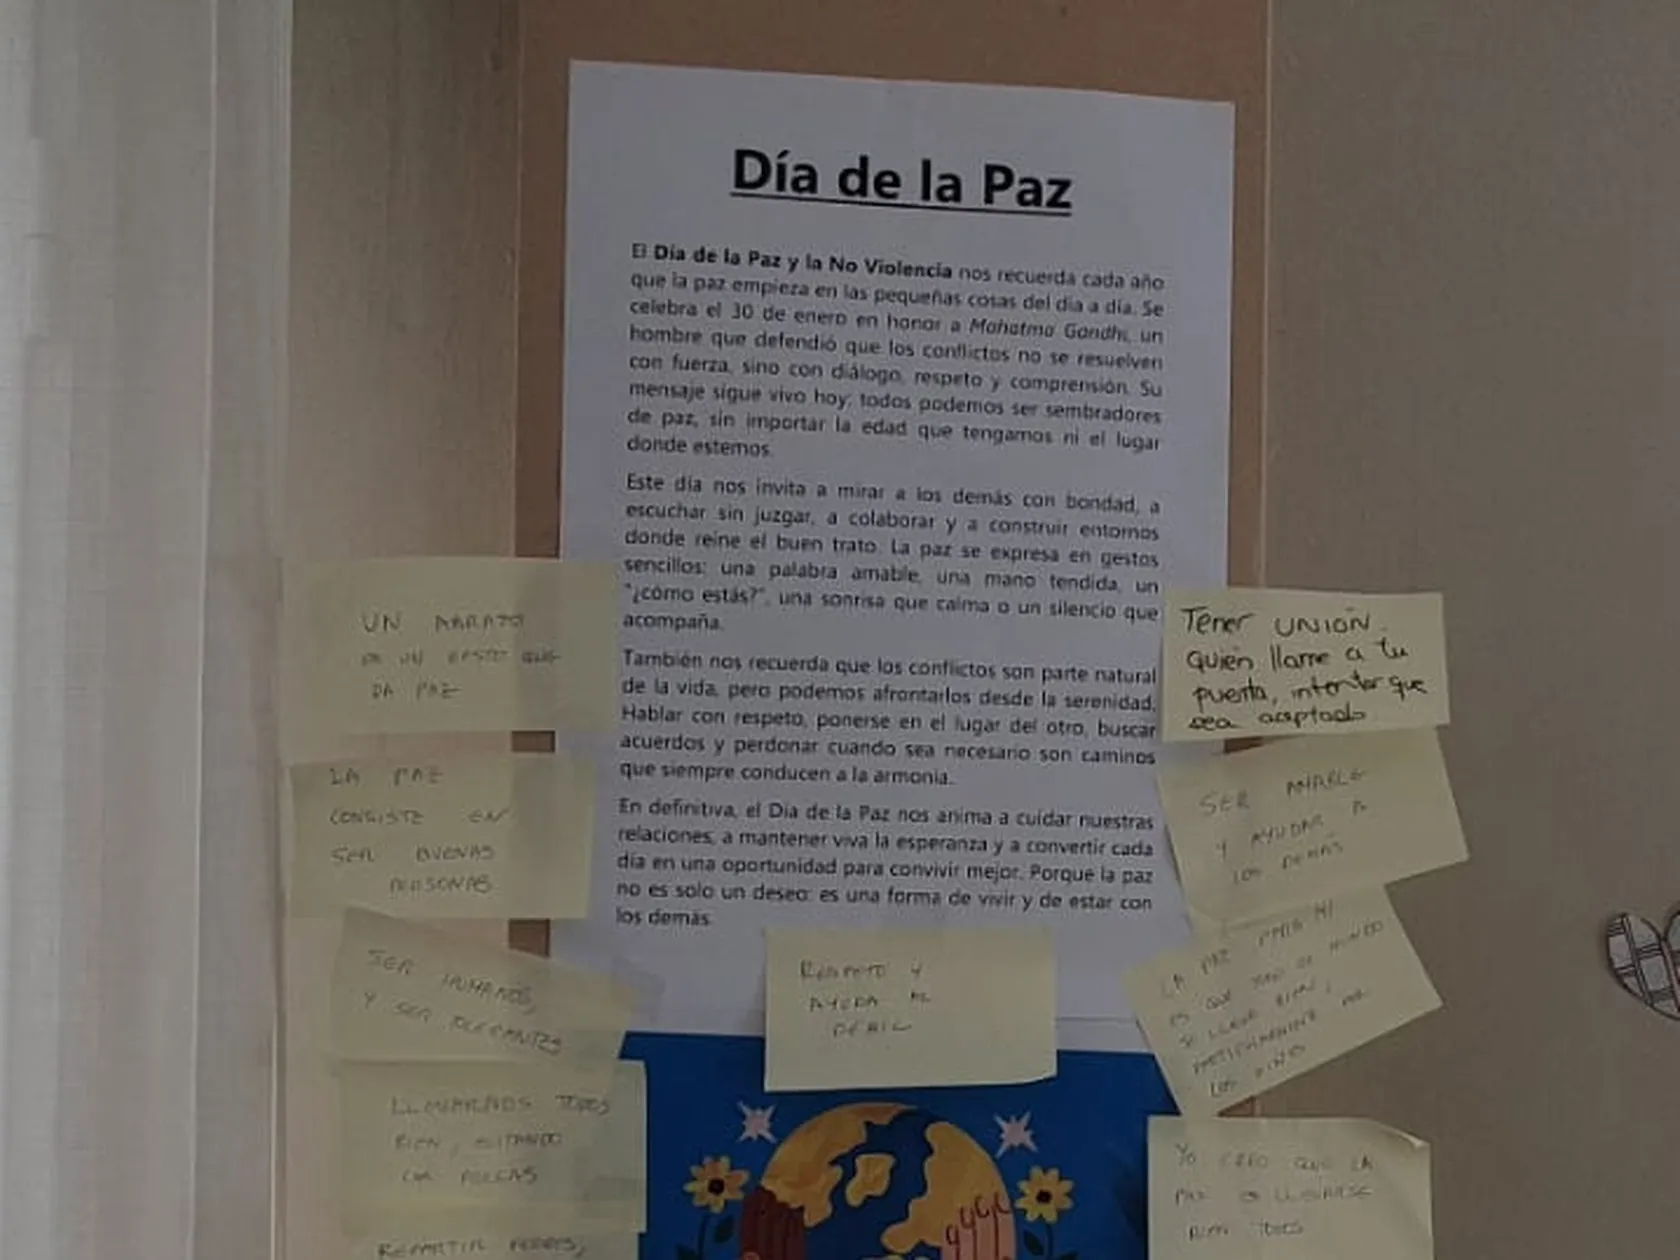 Día de la Paz
El Día de la Paz y la No Violencia nos recuerda cada año
que la paz empieza en las pequeñas cosas del día a día. Se
celebra el 30 de enero en honor a Mahatma Gandhi, un
hombre que defendió que los conflictos no se resuelven
con fuerza, sino con diálogo, respeto y comprensión. Su
mensaje sigue vivo hoy: todos podemos ser sembradores
de paz, sin importar la edad que tengamos ni el lugar
donde estemos.
Este día nos invita a mirar a los demás con bondad, a
escuchar sin juzgar, a colaborar y a construir entornos
donde reine el buen trato. La paz se expresa en gestos
sencillos: una palabra amable, una mano tendida, un
"¿cómo estás?", una sonrisa que calma o un silencio que
acompaña.
También nos recuerda que los conflictos son parte natural
de la vida, pero podemos afrontarlos desde la serenidad.
Hablar con respeto, ponerse en el lugar del otro, buscar
acuerdos y perdonar cuando sea necesario son caminos
que siempre conducen a la armonía.
En definitiva, el Día de la Paz nos anima a cuidar nuestras
relaciones, a mantener viva la esperanza y a convertir cada
día en una oportunidad para convivir mejor. Porque la paz
no es solo un deseo: es una forma de vivir y de estar con
los demás.
UN
ES UN GESTO QUE
DA PAZ
LA PAZ
CONSISTE EN
SER BUENAS
PERSONAS
SER HUMANOS,
Y SER TOLERANTES
LLEVARNOS TODOS
BIEN, EVITANDO
REPARTIR
RESPETO Y
AYUDA AL
DEBIL
Tener UNIÓN.
quien llame a tu
puerta, intentar que
sea aceptado
SER AMABLE
Y AYUDAR A
LOS DEMÁS
LA PAZ PARA MI
ES QUE TODO EL MUNDO
SE LLEVE BIEN,
LOS NIÑOS
YO CREO QUE LA
PAZ ES LLEVARSE
BIEN TODOS